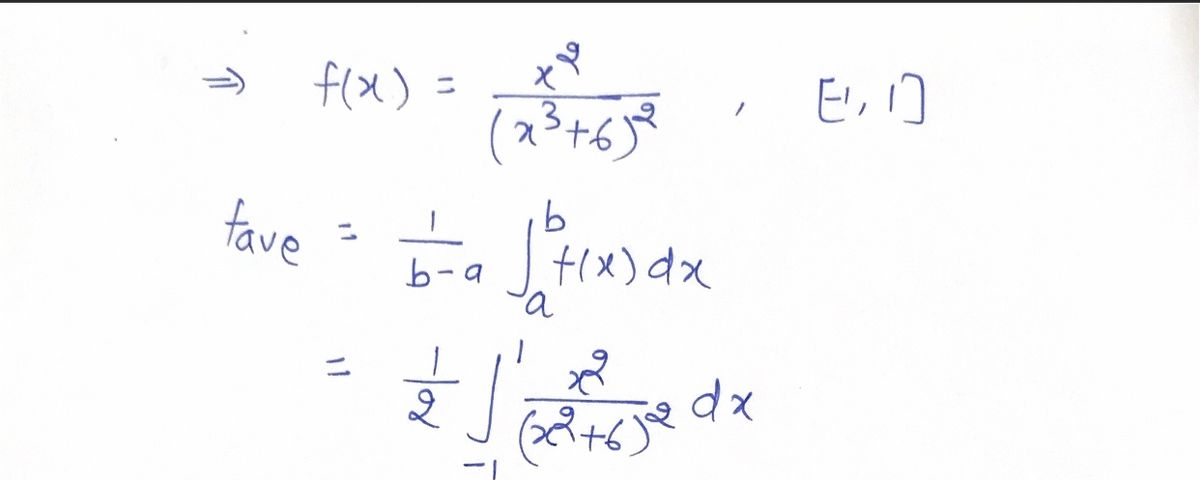 ⇒ f(x) = x²/(x³+6)² , [-1, 1]
fave = 1/(b-a) ∫ₐᵇ f(x) dx
= 1/2 ∫₋₁¹ x²/(x²+6)² dx